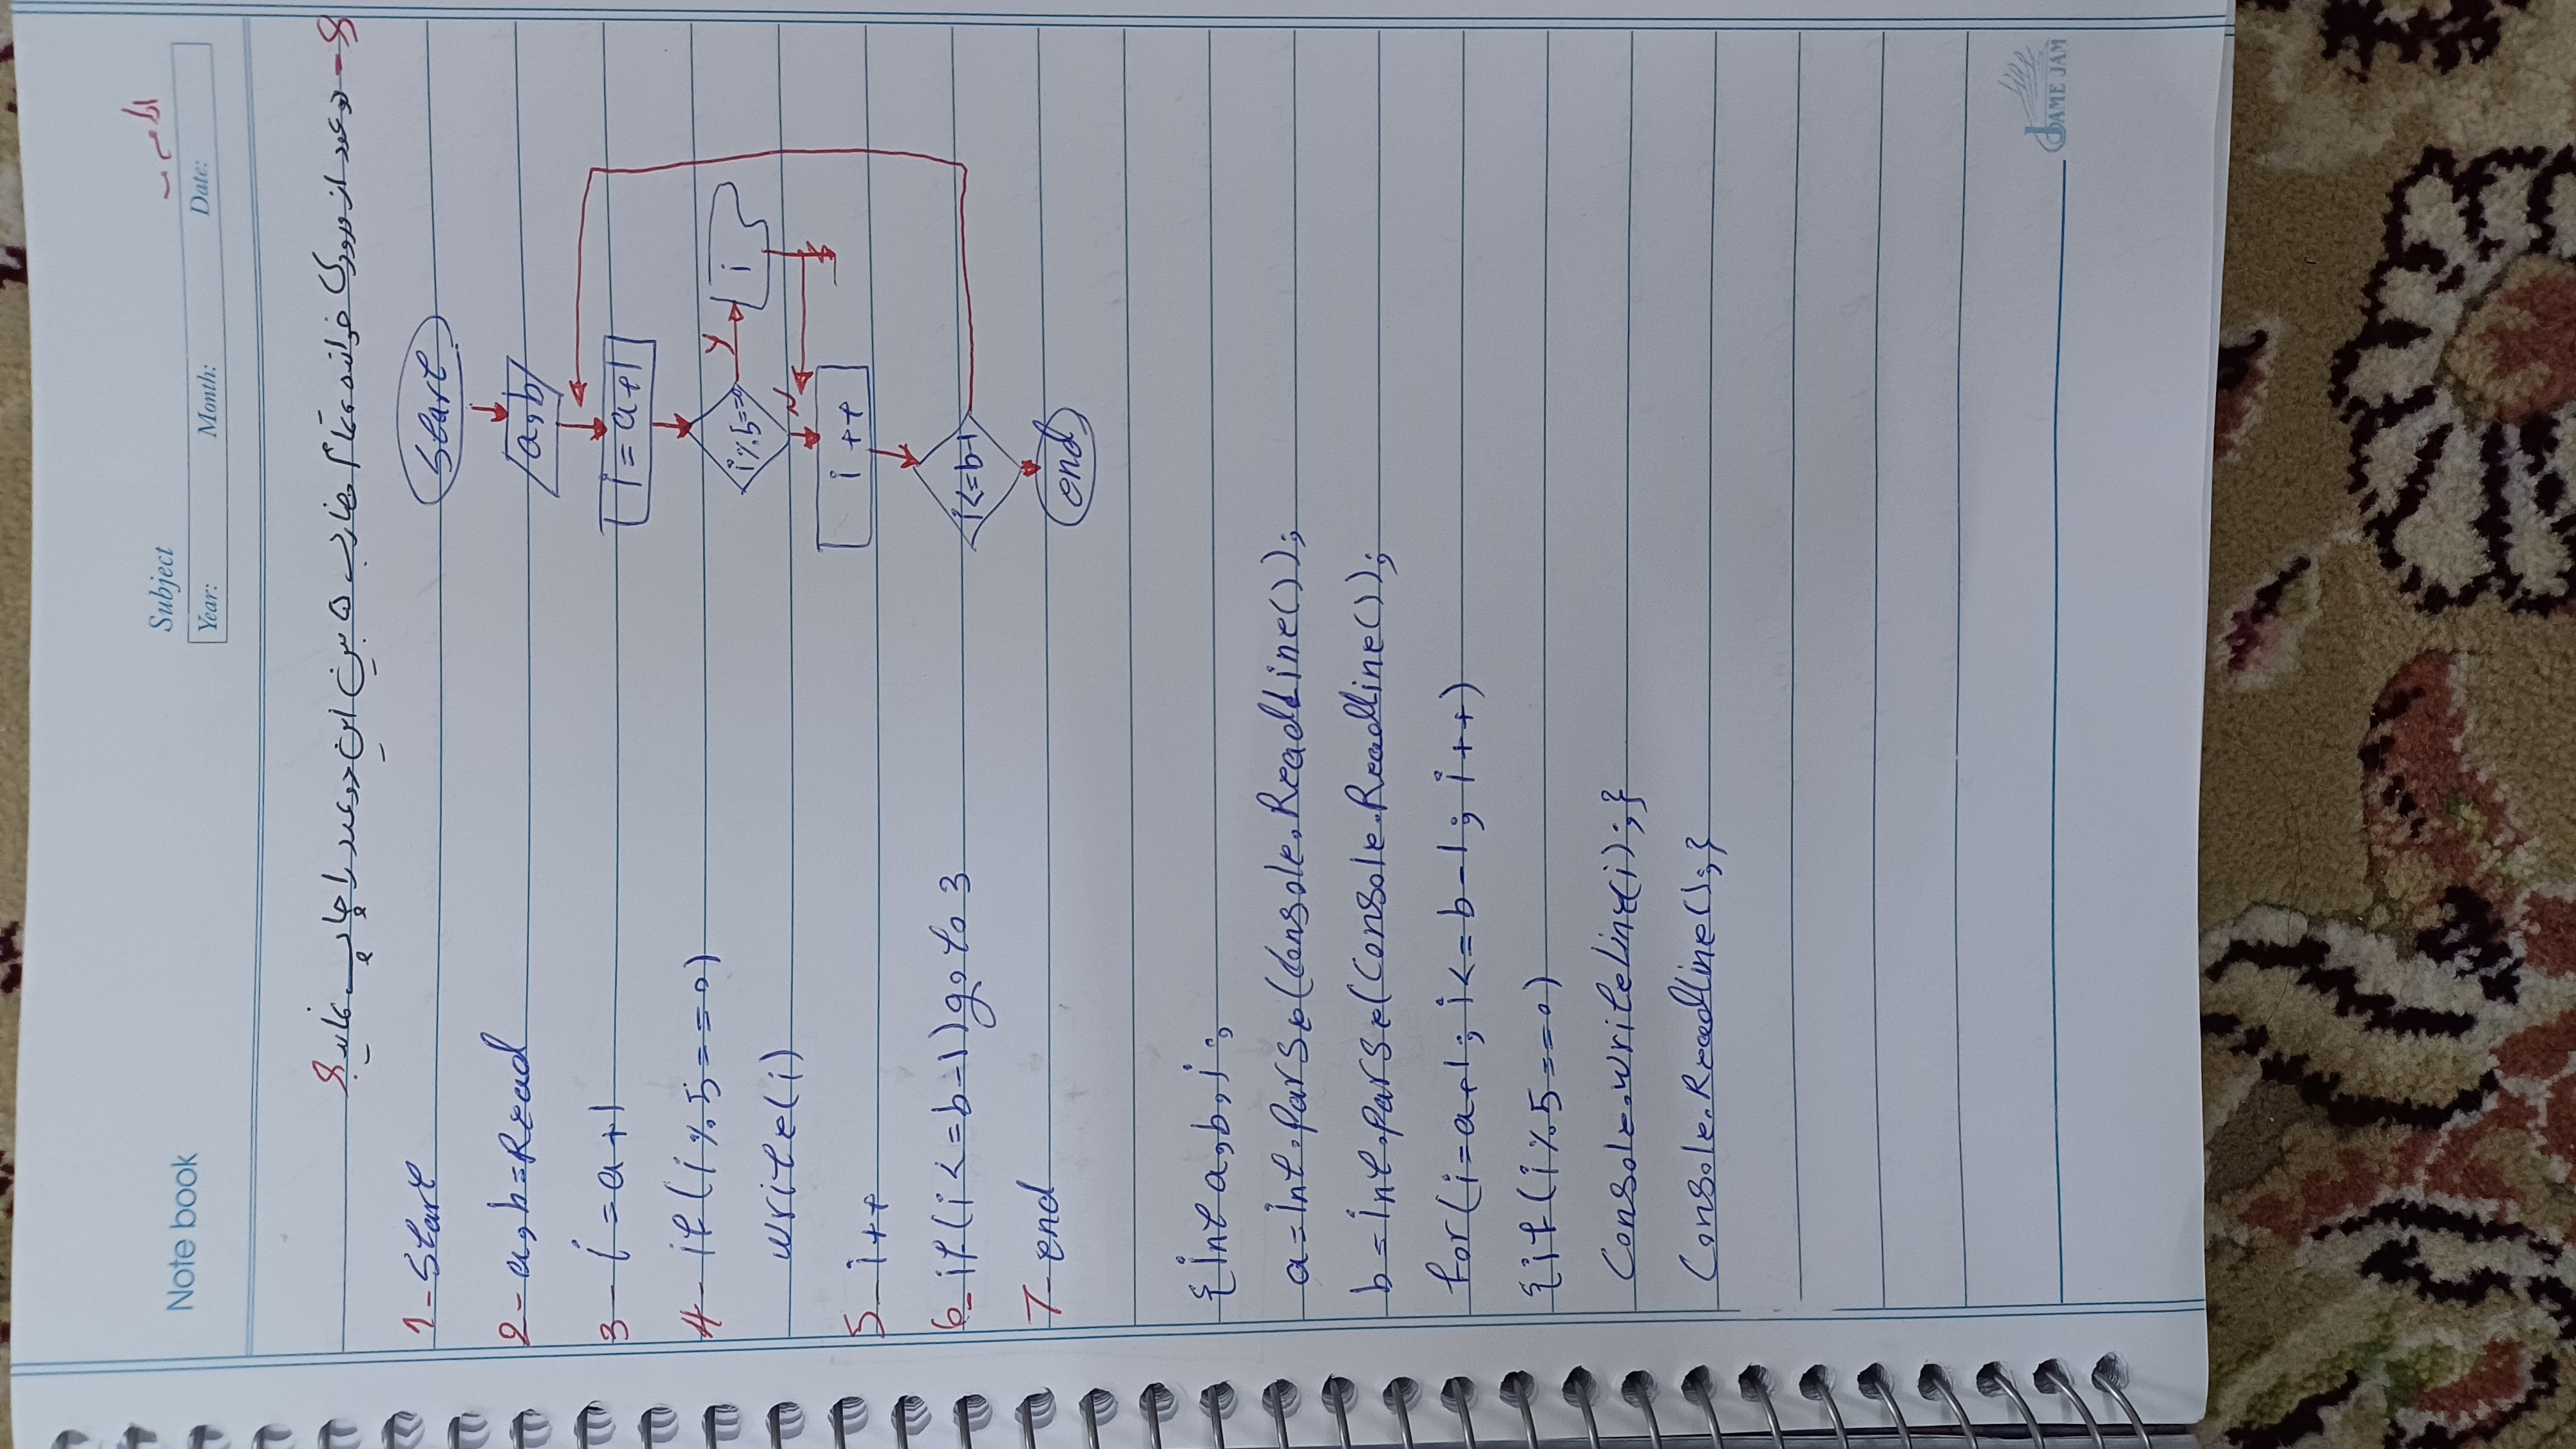 Note book
Subject
Year: Month: Date:
۹- دو عدد از ورودی خوانده تمام مضارب ۵ بین این دو عدد را چاپ نمایید؟
1- Start
2- a,b=Read
3- i=a+1
4- if(i%5==0)
write(i)
5- i++
6- if(i<=b-1)goto 3
7- end
Start
a,b
i=a+1
i%5==0
y
i
N
i++
i<=b-1
end
{int a,b,i;
a=int.parse(console.ReadLine());
b=int.parse(Console.Readline());
for(i=a+1;i<=b-1;i++)
{if(i%5==0)
Console.writeline(i);}
Console.Readline();}
JAME JAM